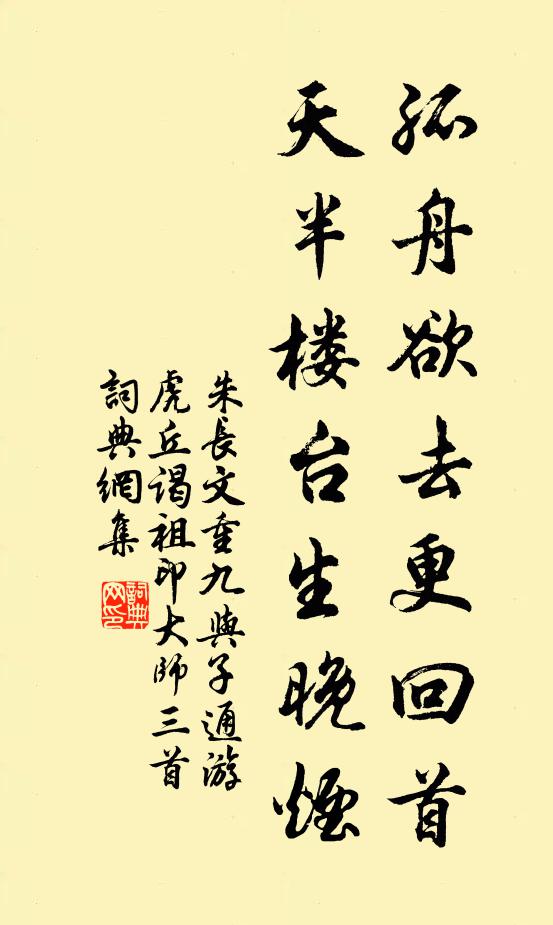 孤舟欲去更回首
天半楼台生晚烟
朱長文重九與子通游
虎丘謁祖印大师三首
詞典網集
詞典
网印